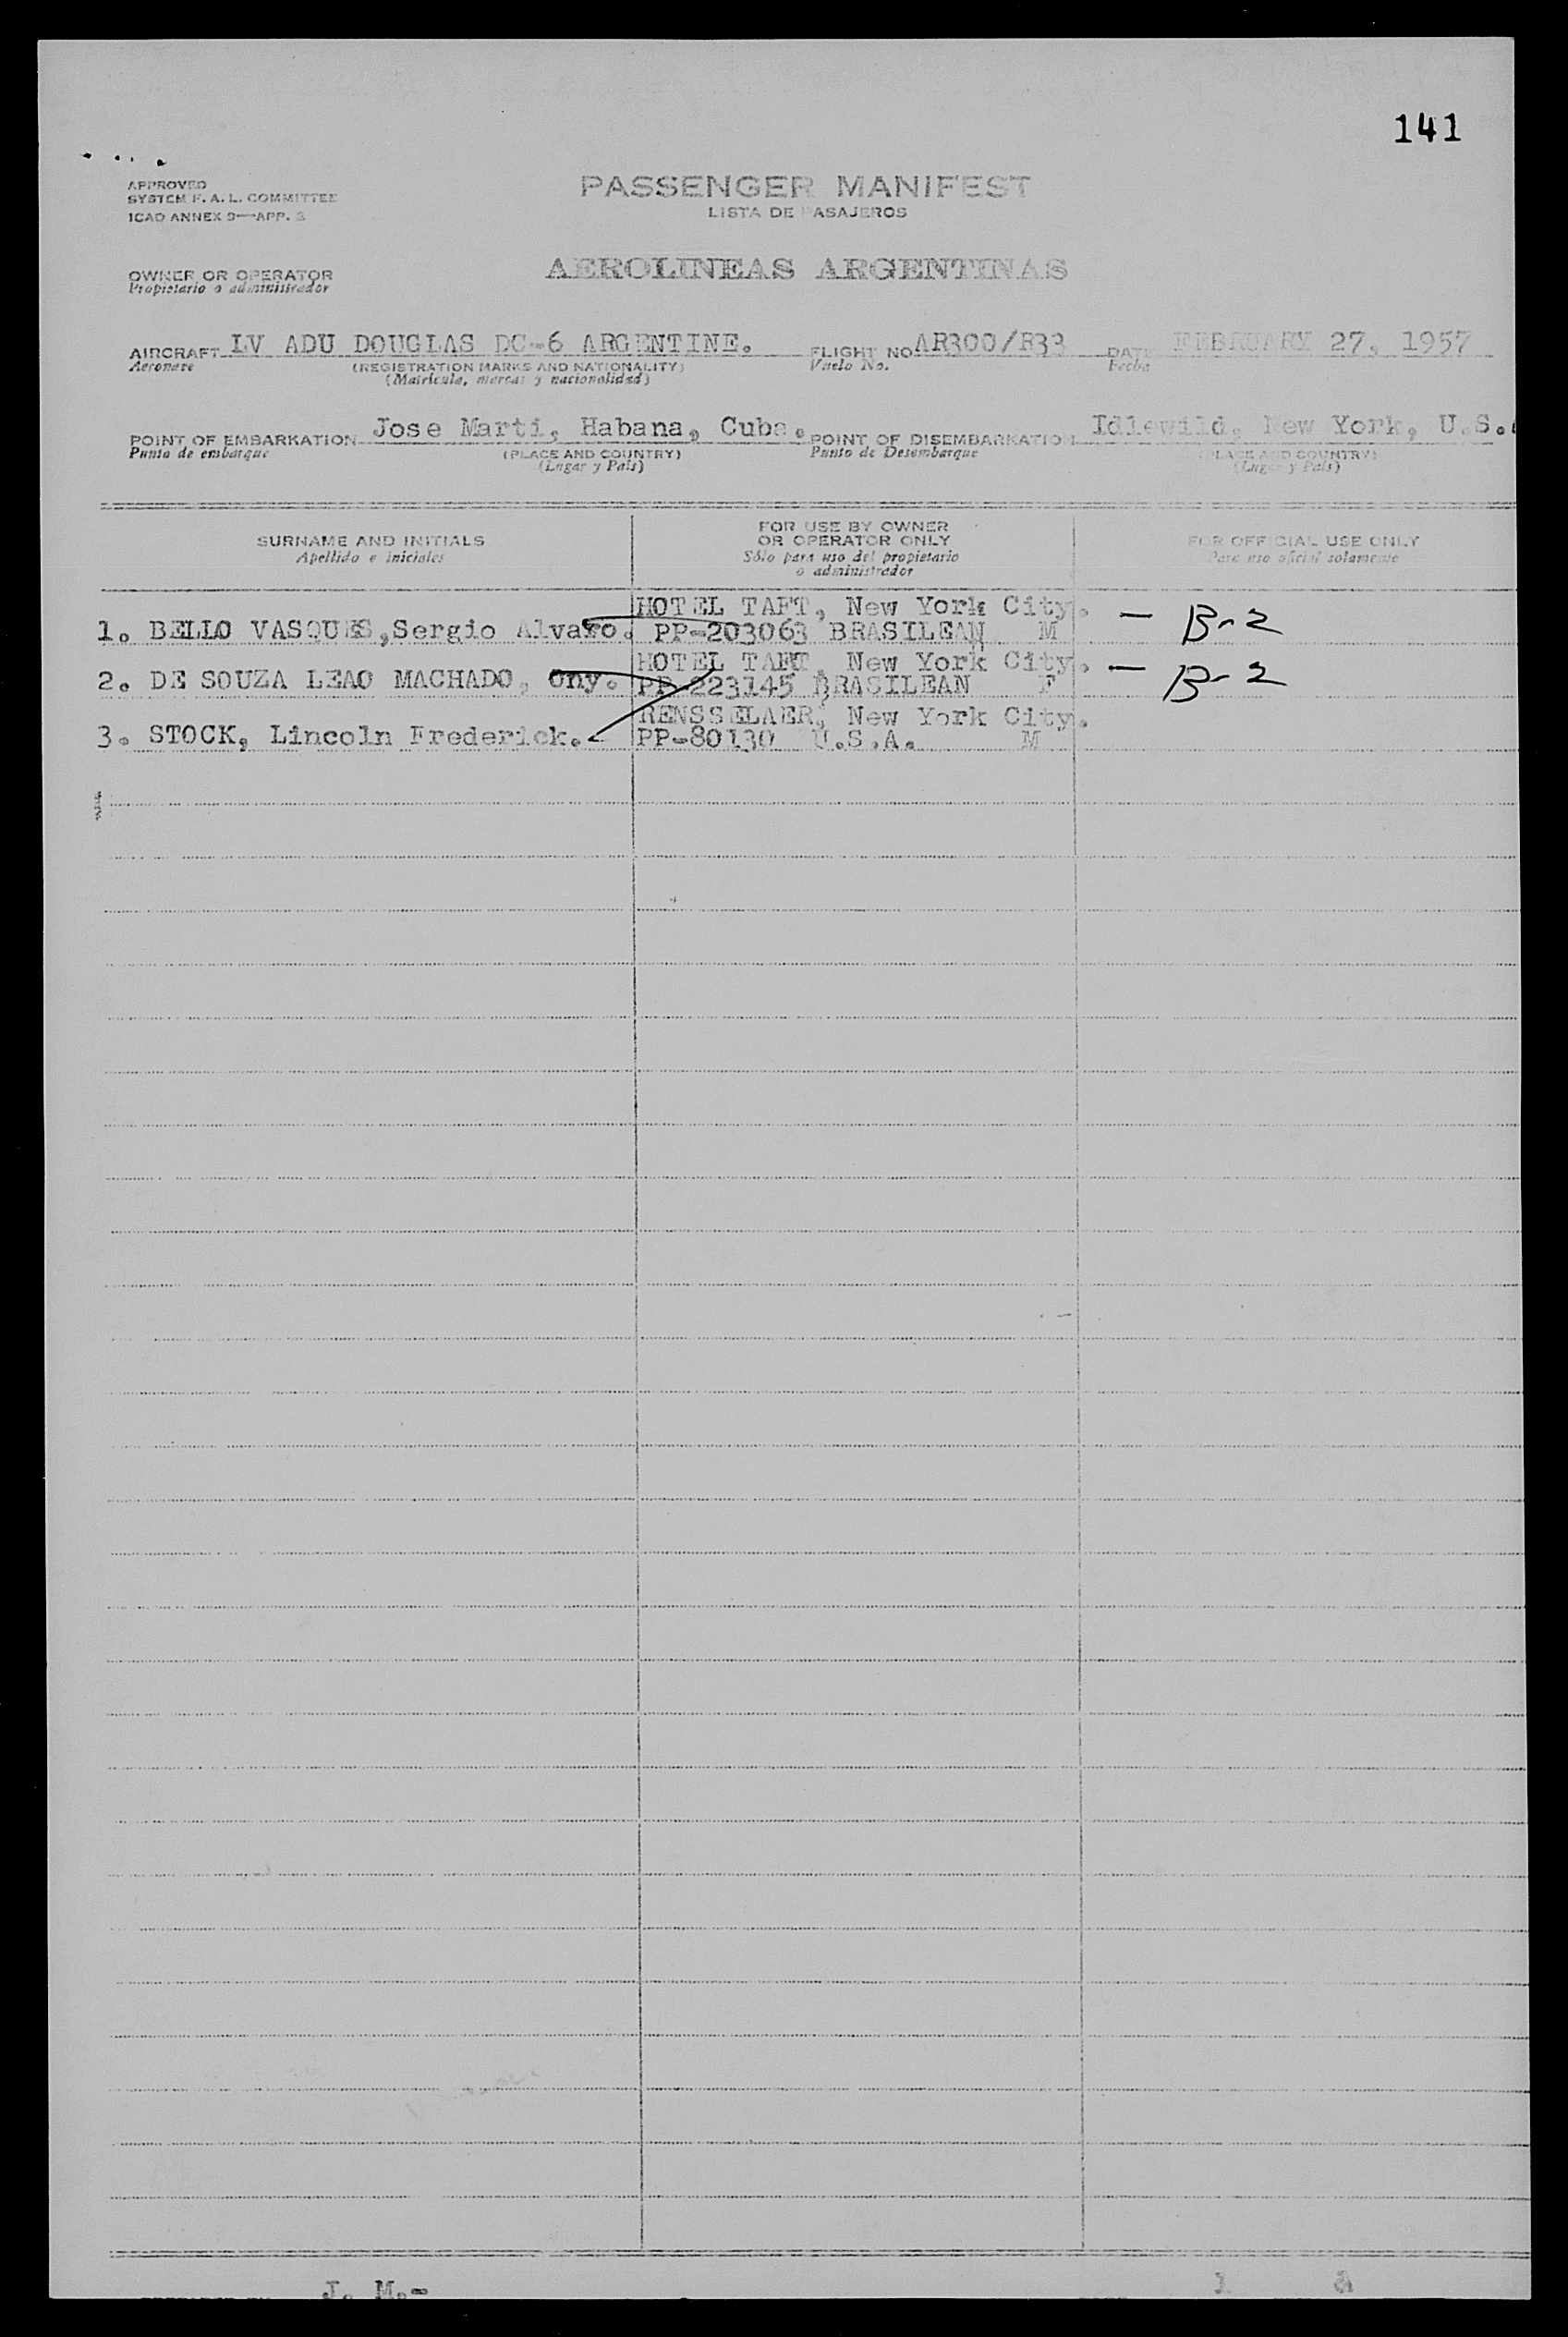 141
APPROVED
SYSTEM F. A. L. COMMITTEE
ICAO ANNEX 9—APP. 3
PASSENGER MANIFEST
LISTA DE PASAJEROS
OWNER OR OPERATOR
Propietario o administrador
AEROLINEAS ARGENTINAS
AIRCRAFT LV ADU DOUGLAS DC-6 ARGENTINE. FLIGHT NO AR300/R33 DATE FEBRUARY 27, 1957
Aeronave (REGISTRATION MARKS AND NATIONALITY) Vuelo No. Fecha
(Matrícula, marcas y nacionalidad)
POINT OF EMBARKATION Jose Marti, Habana, Cuba. POINT OF DISEMBARKATION Idlewild, New York, U.S.
Punto de embarque (PLACE AND COUNTRY) Punto de Desembarque (PLACE AND COUNTRY)
(Lugar y País) (Lugar y País)
SURNAME AND INITIALS
Apellido e iniciales
FOR USE BY OWNER
OR OPERATOR ONLY
Sólo para uso del propietario
o administrador
FOR OFFICIAL USE ONLY
Para uso oficial solamente
HOTEL TAFT, New York City. — B-2
1. BELLO VASQUES,Sergio Alvaro. PP-203063 BRASILEAN M
HOTEL TAFT, New York City. — B-2
2. DE SOUZA LEAO MACHADO, Ony. PP-223145 BRASILEAN F
RENSSELAER, New York City.
3. STOCK, Lincoln Frederick. PP-80130 U.S.A. M
J. M.-
1